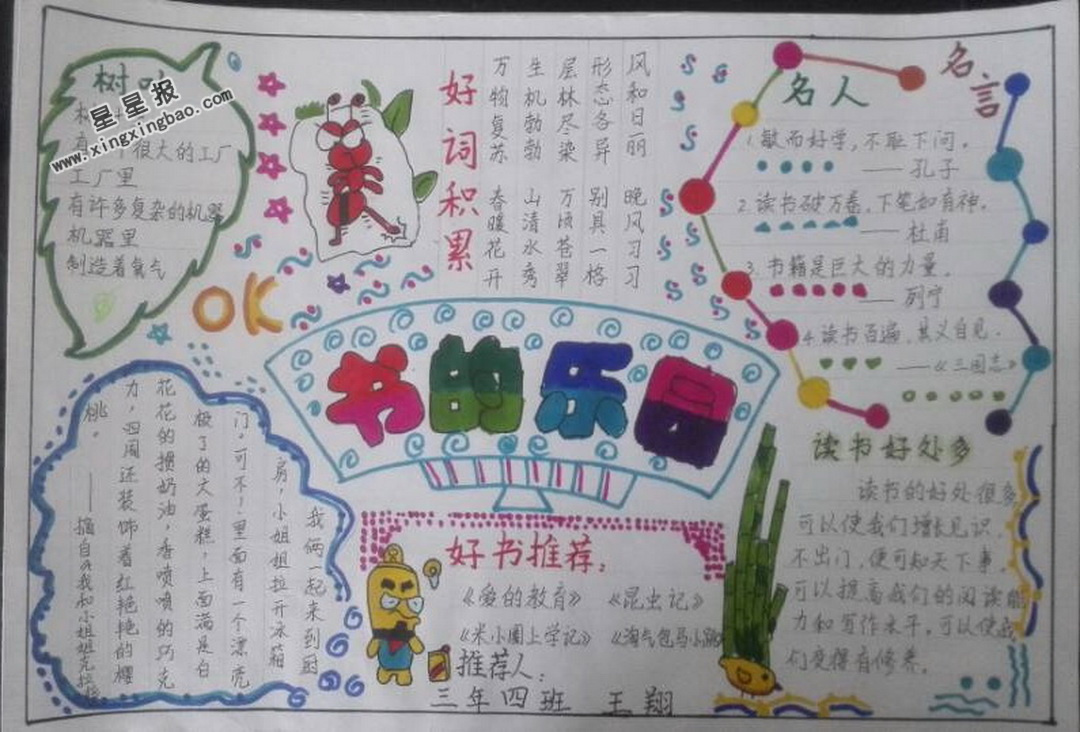 树叶
星星报
www.xingxingbao.com
有一个很大的工厂
工厂里
有许多复杂的机器
机器里
制造着氧气
OK
好词积累
风和日丽 晚风习习
形态各异 别具一格
层林尽染 万顷苍翠
生机勃勃 山清水秀
万物复苏 春暖花开
名人
名言
1.敏而好学,不耻下问。
——孔子
2.读书破万卷,下笔如有神。
——杜甫
3.书籍是巨大的力量。
——列宁
4.读书百遍,其义自见。
——《三国志》
书的乐园
我俩一起来到厨
房,小姐姐拉开冰箱
门。可不!里面有一个漂亮
极了的大蛋糕,上面满是白
花花的掼奶油,香喷喷的巧克
力,四周还装饰着红艳艳的樱
桃。
——摘自《我和小姐姐克拉拉
好书推荐:
《爱的教育》 《昆虫记》
《米小圈上学记》 《淘气包马小跳
推荐人:
三年四班 王翔
读书好处多
读书的好处很多
可以使我们增长见识,
不出门,便可知天下事。
可以提高我们的阅读能
力和写作水平。可以使我
们变得有修养。